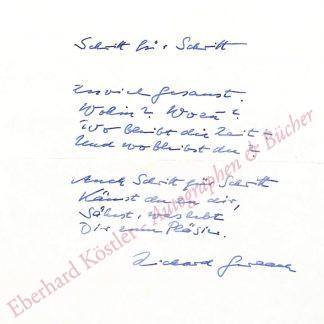 Schritt für Schritt
Zuviel gesaust.
Wohin? Wozu?
Wo bleibt die Zeit –
Und wo bleibst du?
Auch Schritt für Schritt
Kämst du zu dir,
Sähst, was lebt
Dir zum Pläsir.
Richard
Eberhard Köstler - Autographen & Bücher